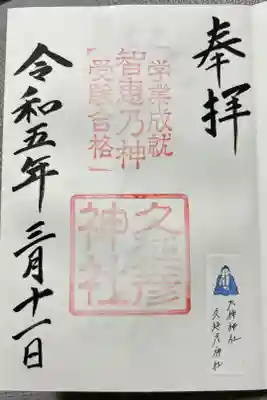 奉拝
「学業成就
智惠乃神
受験合格」
久延彦
神社
令和五年三月十一日
大神神社
久延彦神社